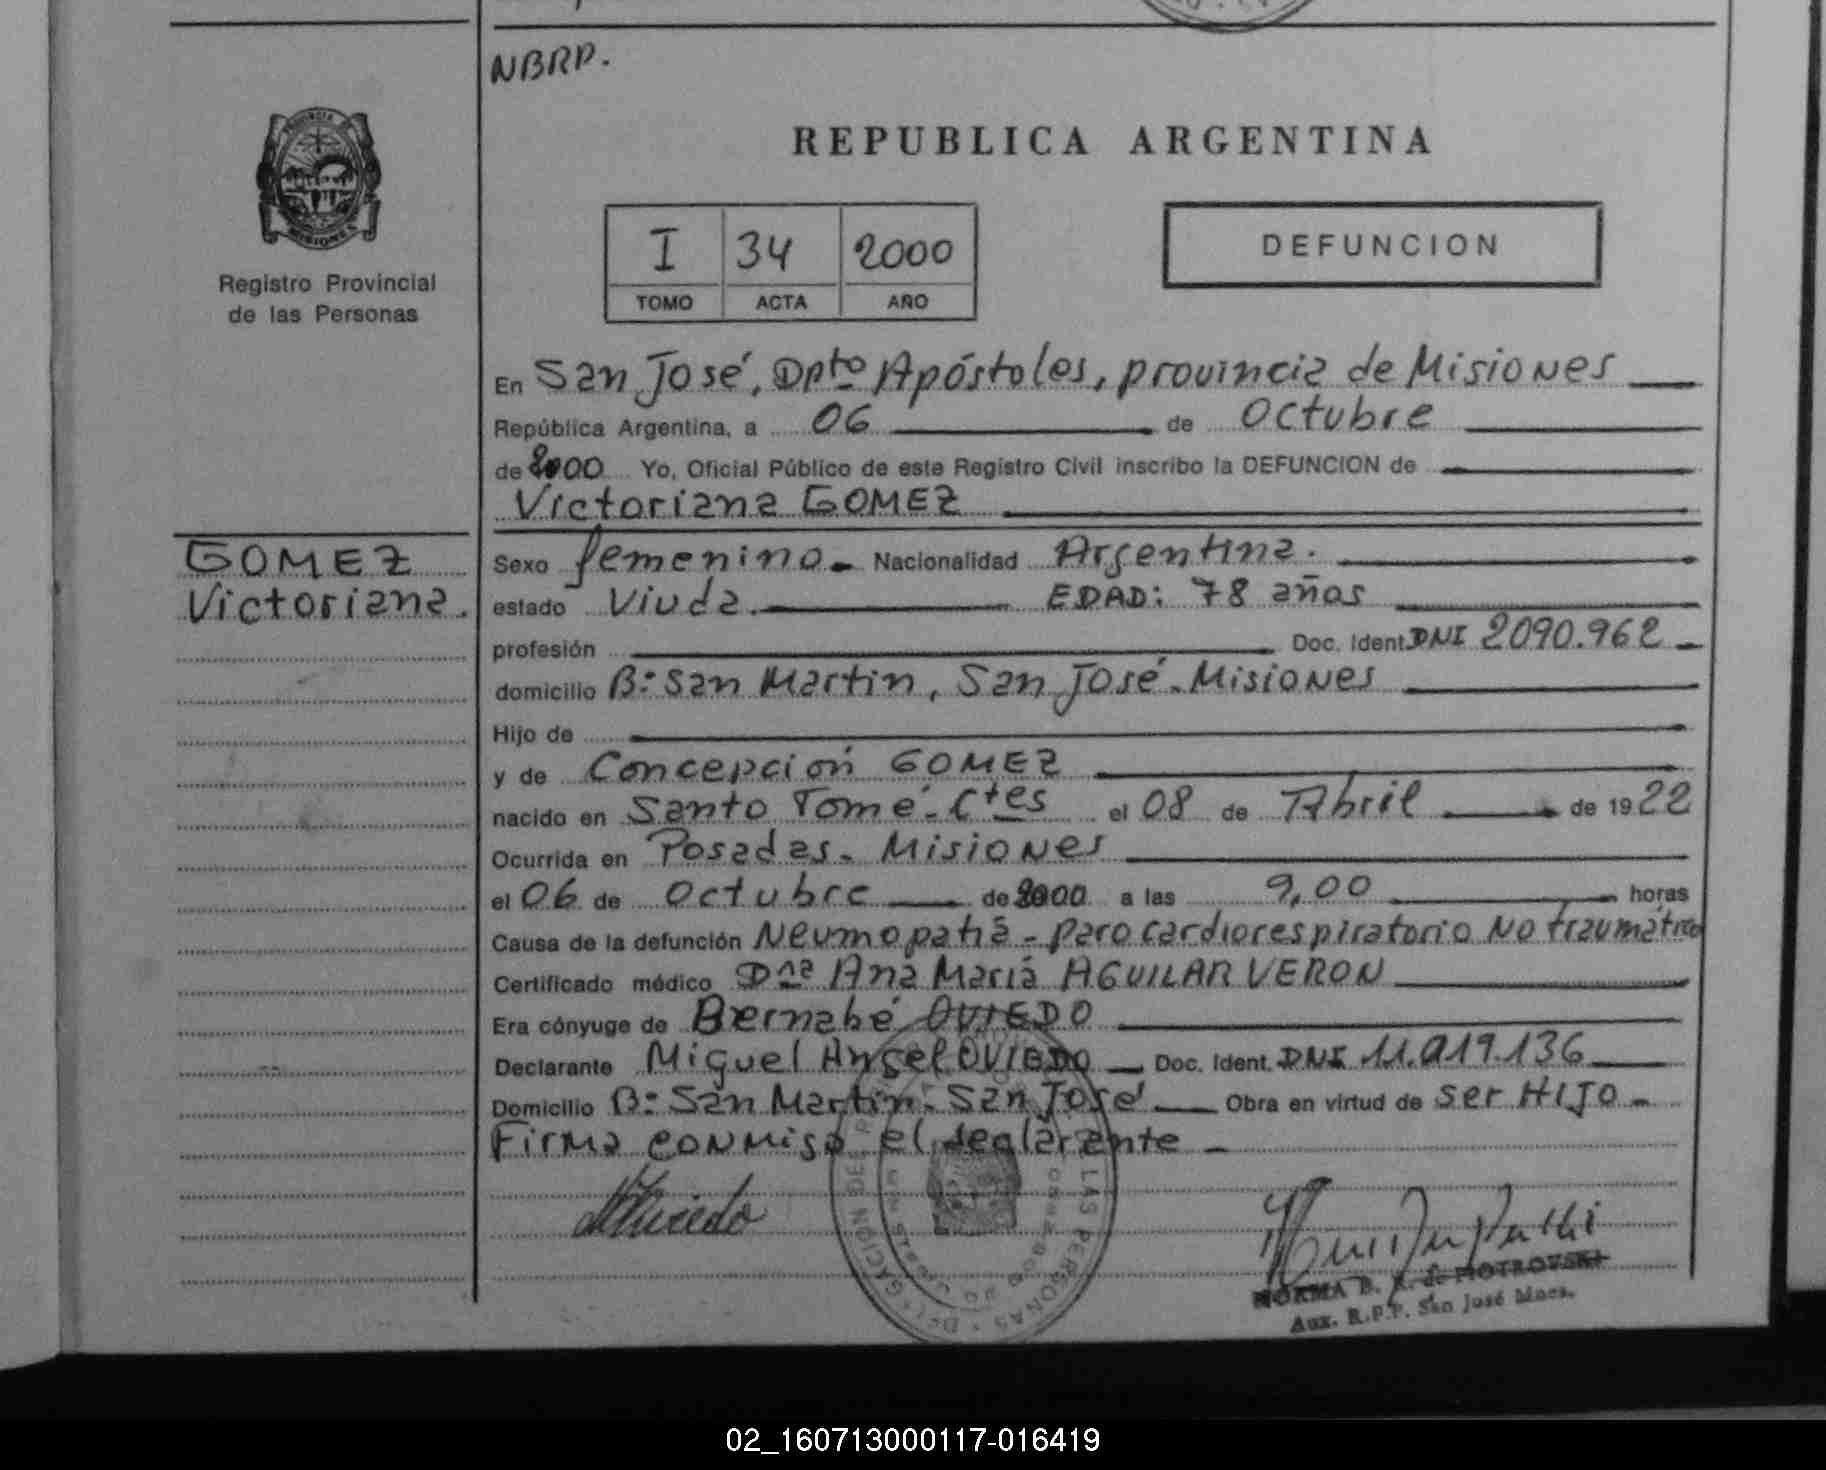 NBRP.
REPUBLICA ARGENTINA
PROVINCIA DE
MISIONES
Registro Provincial
de las Personas
I 34 2000
TOMO ACTA AÑO
DEFUNCION
En San José, Dpto Apóstoles, provincia de Misiones
República Argentina, a 06 de Octubre
de 2000 Yo, Oficial Público de este Registro Civil inscribo la DEFUNCION de
Victoriana GOMEZ
GOMEZ
Victoriana.
Sexo femenino. Nacionalidad Argentina.
estado Viuda. EDAD: 78 años
profesión Doc. Ident. DNI 2090.962
domicilio B: San Martin, San José. Misiones
Hijo de
y de Concepción GOMEZ
nacido en Santo Tomé. Ctes el 08 de Abril de 1922
Ocurrida en Posadas. Misiones
el 06 de Octubre de 2000 a las 9,00 horas
Causa de la defunción Neumopatía - paro cardiorespiratorio No traumático
Certificado médico Dna Ana María AGUILAR VERON
Era cónyuge de Bernabé OVIEDO
Declarante Miguel Angel OVIEDO Doc. Ident. DNI 11.019.136
Domicilio B: San Martin. San José Obra en virtud de ser HIJO.
Firma conmigo el declarante
NORMA B. PIOTROVSKI
Aux. R.P.P. San José Mnes.
02_160713000117-016419